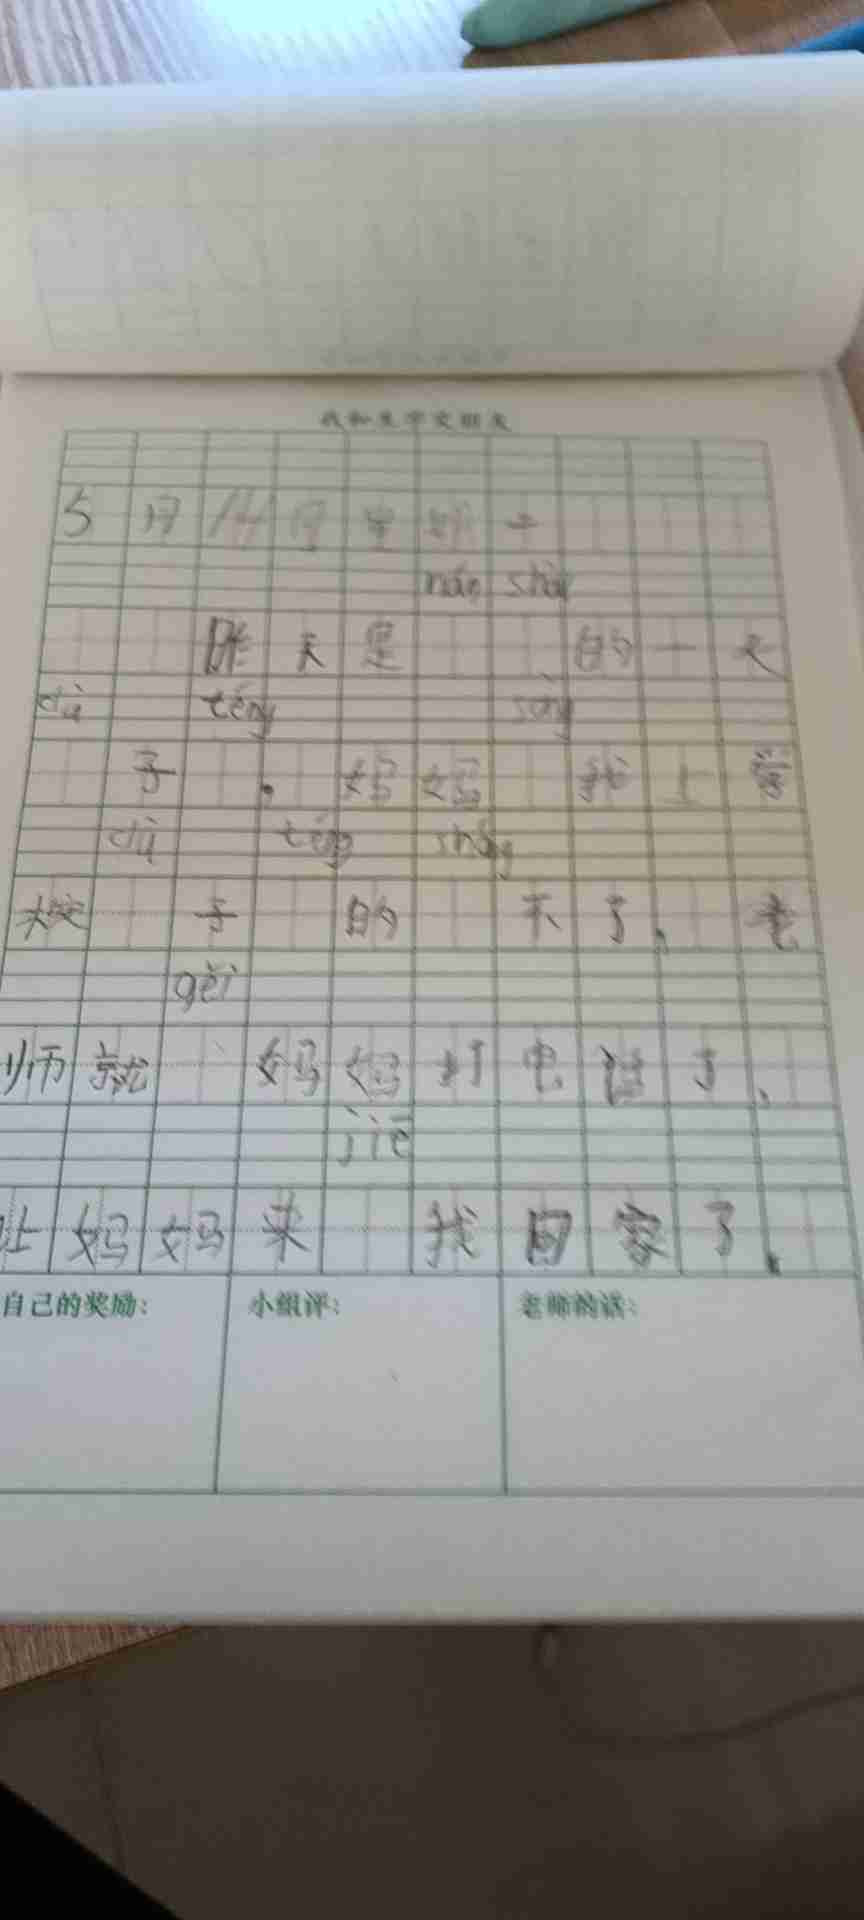 我和生字交朋友
5月14日星期二
nán shòu
昨天是的一天
dù téng sòng
子,妈妈我上学
dù téng shòng
校子的不了,老
gěi
师就妈妈打电话了,
jiē
让妈妈来我回家了.
自己的奖励: 小组评: 老师的话: